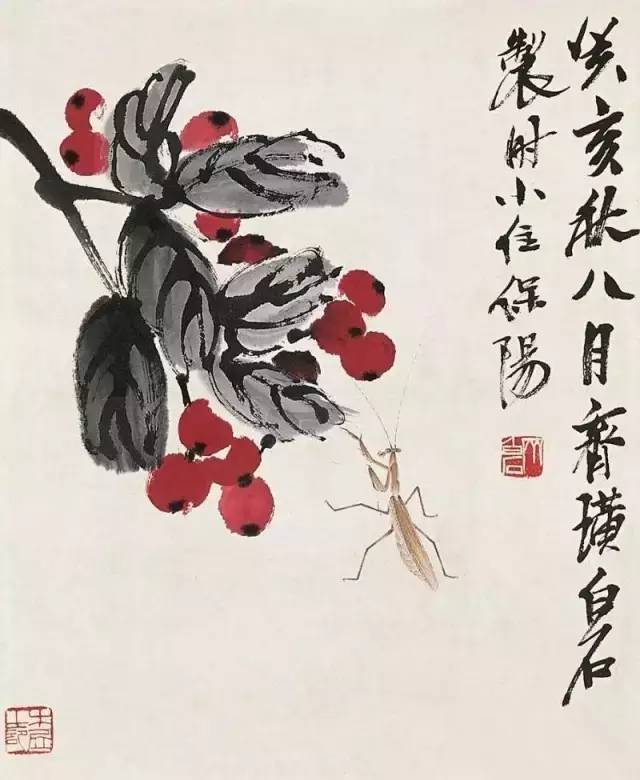 癸亥秋八月齊璜白石
製时小住保陽